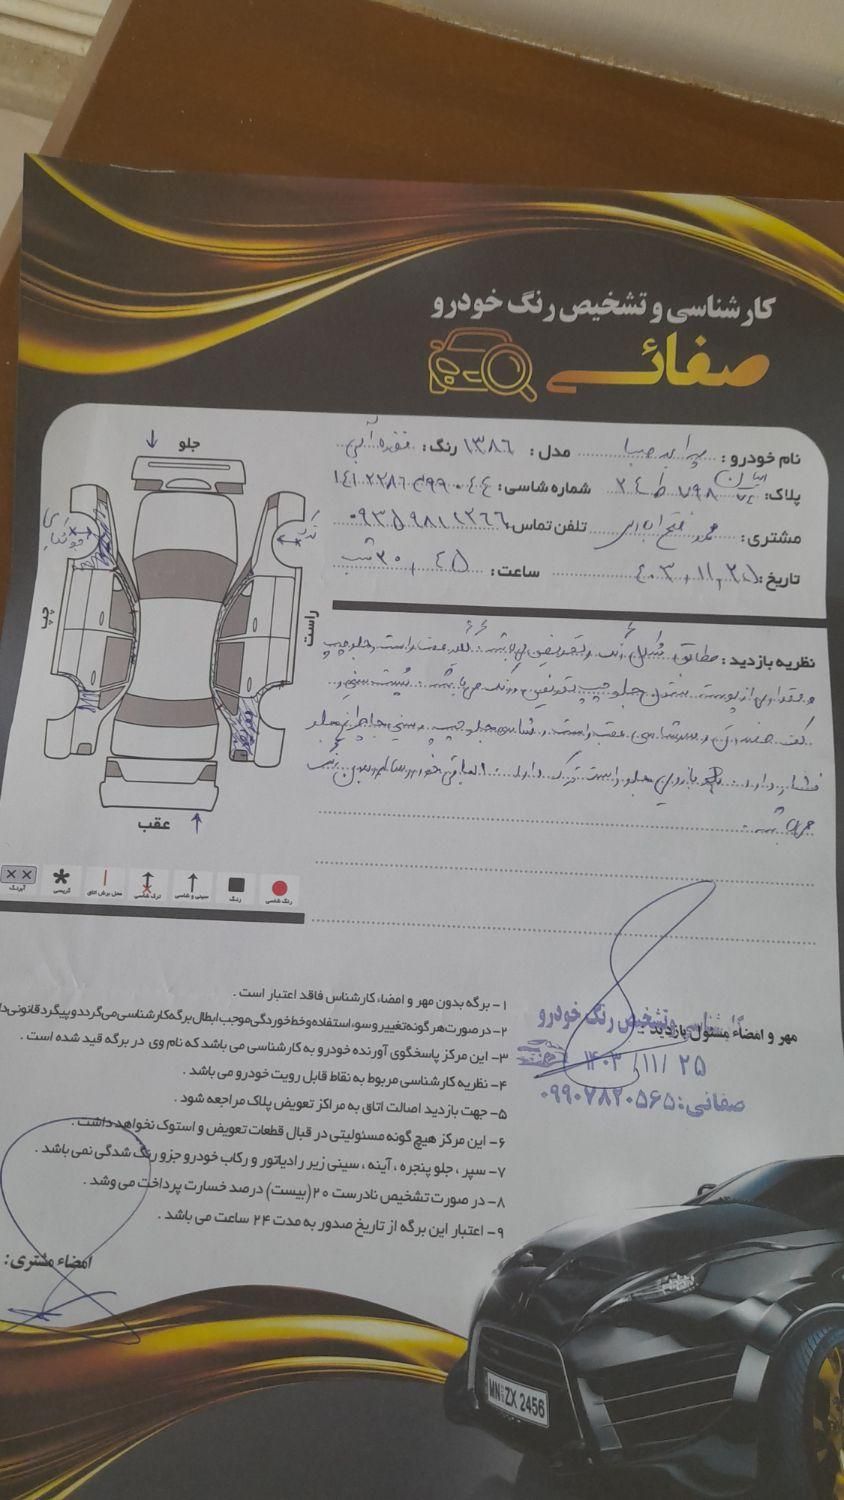 کارشناسی و تشخیص رنگ خودرو
صفائی
نام خودرو : پراید صبا مدل : ۱۳۸۶ رنگ : نقره آبی
پلاک : ۷۹۸ ط ۲۴ شماره شاسی :
مشتری : محمد تلفن تماس :
تاریخ : ۴۰۳،۱۱،۲۵ ساعت : شب
نظریه بازدید : مطابق شکل رنگ و تعویض می باشد عقب راست و جلو چپ
و مقداری از پوسته ستون جلو چپ تعویض و رنگ می باشد
کف صندوق و سرشاسی عقب راست و شاسی جلو چپ و سینی جلو
فشار دارد بازویی جلو راست ترک دارد الباقی خودرو سالم بدون رنگ
می باشد
جلو
راست
چپ
عقب
رنگ شاسی
رنگ
سینی و شاسی
ترک شاسی
محل برش اتاق
گریسی
آبرنگ
۱- برگه بدون مهر و امضاء کارشناس فاقد اعتبار است .
۲- در صورت هر گونه تغییر و سوء استفاده و خط خوردگی موجب ابطال برگه کارشناسی می گردد و پیگرد قانونی
۳- این مرکز پاسخگوی آورنده خودرو به کارشناسی می باشد که نام وی در برگه قید شده است .
۴- نظریه کارشناسی مربوط به نقاط قابل رویت خودرو می باشد .
۵- جهت بازدید اصالت اتاق به مراکز تعویض پلاک مراجعه شود .
۶- این مرکز هیچ گونه مسئولیتی در قبال قطعات تعویض و استوک نخواهد داشت .
۷- سپر ، جلو پنجره ، آینه ، سینی زیر رادیاتور و رکاب خودرو جزو رنگ شدگی نمی باشد .
۸- در صورت تشخیص نادرست ۲۰ (بیست) درصد خسارت پرداخت می شد .
۹- اعتبار این برگه از تاریخ صدور به مدت ۲۴ ساعت می باشد .
مهر و امضاء مسئول بازدید
کارشناسی و تشخیص رنگ خودرو
۱۴۰۳/۱۱/۲۵
صفائی: ۰۹۹۰۷۸۲۰۵۶۵
امضاء مشتری :
MN ZX 2456